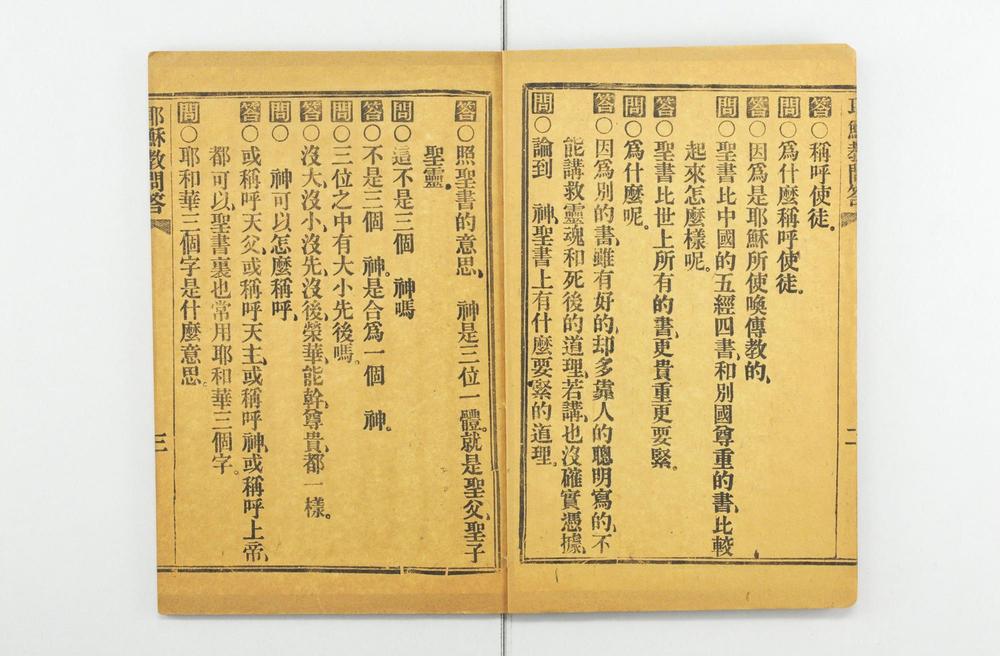 耶穌教問答
二
答○稱呼使徒。
問○爲什麽稱呼使徒。
答○因爲是耶穌所使喚傳教的、
問○聖書比中國的五經四書、和別國尊重的書、比較
起來怎麽樣呢。
答○聖書比世上所有的書、更貴重更要緊。
問○爲什麽呢。
答○因爲別的書、雖有好的、却多靠人的聰明寫的、不
能講救靈魂和死後的道理、若講、也沒確實憑據、
問○論到　神、聖書上有什麽要緊的道理。
答○照聖書的意思、　神是三位一體、就是聖父、聖子
聖靈。
問○這不是三個　神嗎
答○不是三個　神。是合爲一個　神。
問○三位之中有大小先後嗎。
答○沒大、沒小、沒先、沒後、榮華、能幹、尊貴、都一樣。
問○　神可以怎麽稱呼、
答○或稱呼天父、或稱呼天主、或稱呼神、或稱呼上帝、
都可以、聖書裏也常用耶和華三個字。
問○耶和華三個字是什麽意思。
耶穌教問答
三